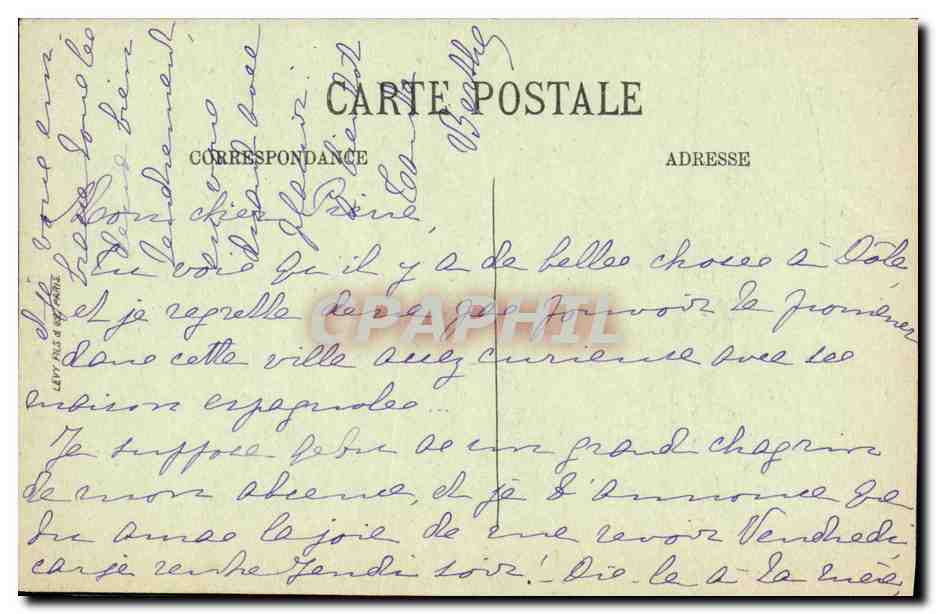 CARTE POSTALE
CORRESPONDANCE
ADRESSE
Mon cher René,
Tu vois qu'il y a de belles choses à Dôle
et je regrette de ne pas pouvoir te promener
dans cette ville assez curieuse avec ses
maison espagnoles...
Je suppose que tu as un grand chagrin
de mon absence, et je t'annonce que
tu auras la joie de me revoir Vendredi
car je rentre Jeudi soir! Dis-le à ta mère,
et vous en
tendrement
A bientôt
Berthe
LEVY FILS & Cie PARIS
CPAPHIL